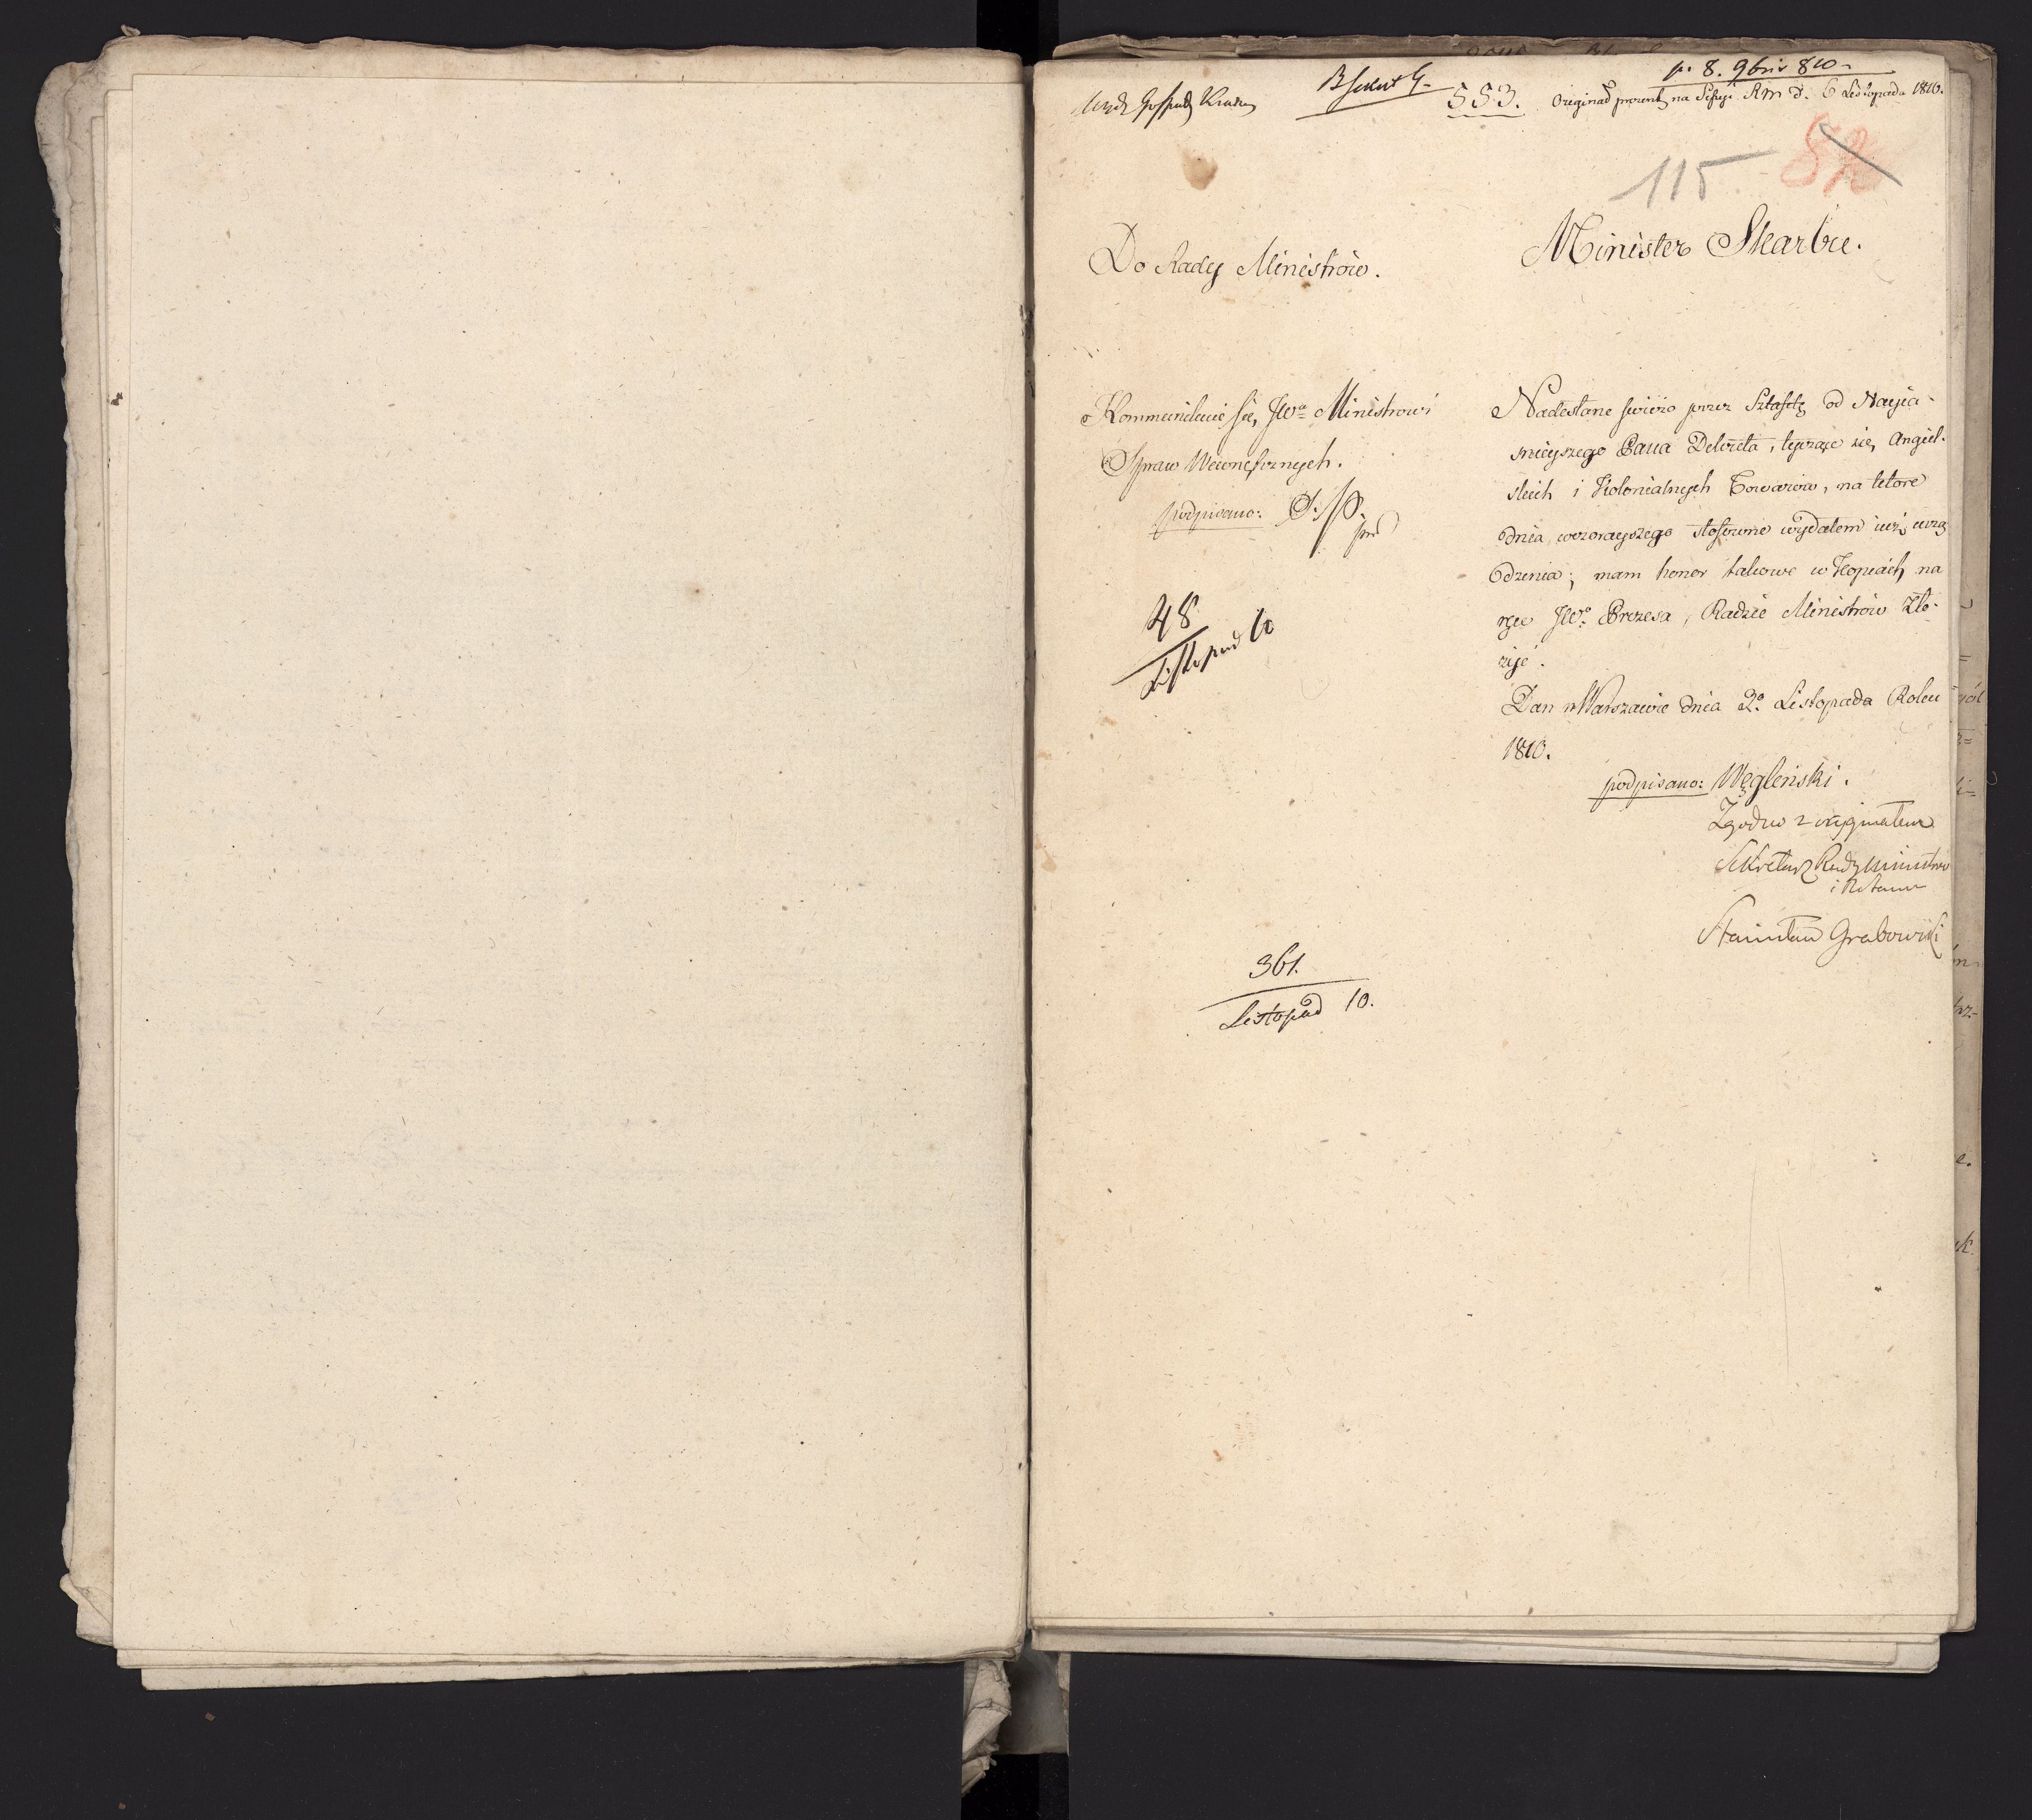 p. 8. 9bris 810.
553. Original prezent. na Sessyi RM d. 6 Listopada 1810.
115
Minister Skarbu.
Do Rady Ministrów.
Kommunikuie się, JWu Ministrowi
Spraw Wewnętrznych.
podpisano: S. P.
48
Listopad 10
Nadesłane świeżo przez Sztafetę od Nayia-
śnieyszego Pana Dekreta, tyczące się Angiel-
skich i Kolonialnych Towarów, na które
dnia wczorayszego stosowne wydałem iuż urzą
dzenia; mam honor takowe w Kopiach na
ręce JWo Prezesa, Radzie Ministrów zło-
żyć.
Dan w Warszawie dnia 2o Listopada Roku
1810.
podpisano: Węgleński.
Zgodno z oryginałem
Sekretarz Rady Ministrów
Stanisław Grabowski
361.
Listopad 10.